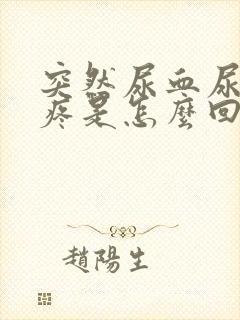 突然尿血尿
疼是怎麼回
趙陽生